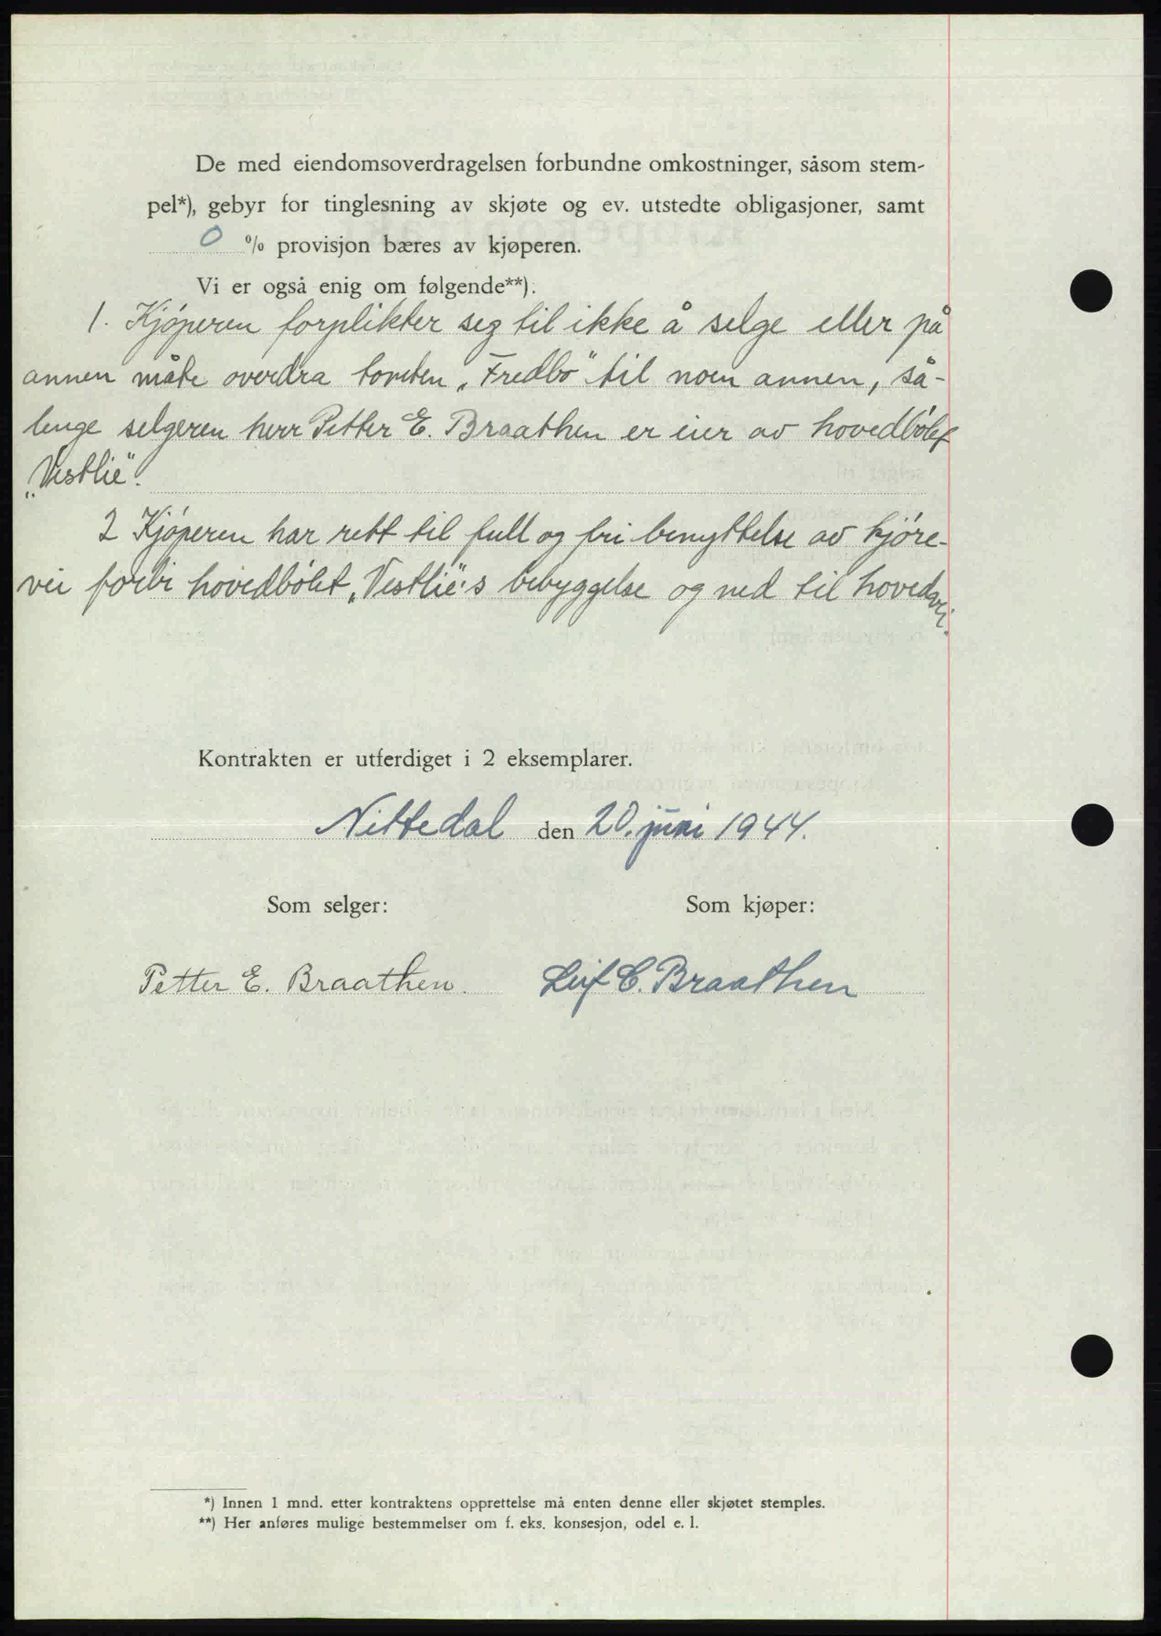 De med eiendomsoverdragelsen forbundne omkostninger, såsom stem-
pel*), gebyr for tinglesning av skjøte og ev. utstedte obligasjoner, samt
0 % provisjon bæres av kjøperen.
Vi er også enig om følgende**):
1. Kjøperen forplikter seg til ikke å selge eller på
annen måte overdra tomten „Fredbo" til noen annen, så-
lenge selgeren herr Petter E. Braathen er eier av hovedbølet
„Vestlie".
2 Kjøperen har rett til full og fri benyttelse av kjøre-
vei forbi hovedbølet „Vestlie":s bebyggelse og ned til hovedvei.
Kontrakten er utferdiget i 2 eksemplarer.
Nittedal den 20. juni 1944.
Som selger: Som kjøper:
Petter E. Braathen. Leif C. Braathen
*) Innen 1 mnd. etter kontraktens opprettelse må enten denne eller skjøtet stemples.
**) Her anføres mulige bestemmelser om f. eks. konsesjon, odel e. l.